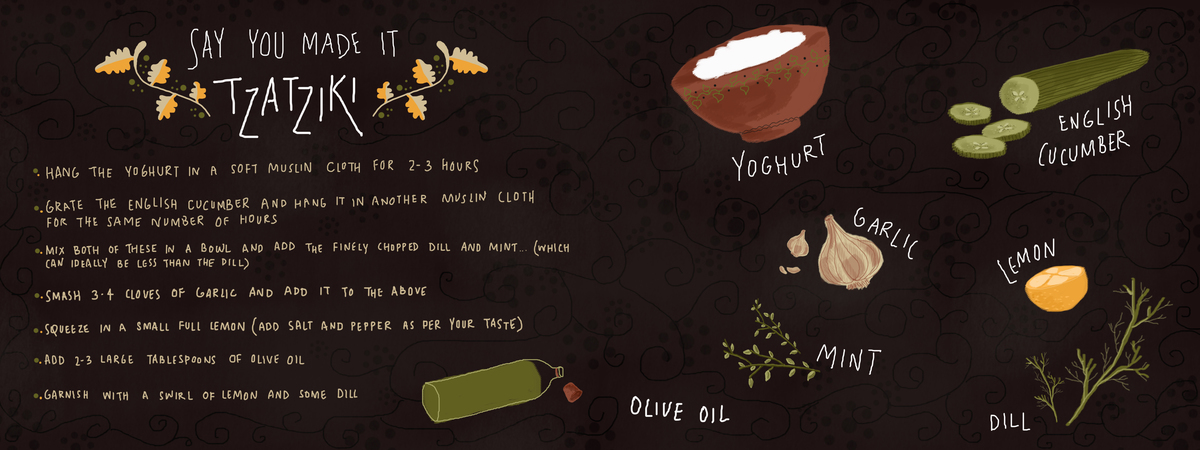 SAY YOU MADE IT
TZATZIKI
HANG THE YOGHURT IN A SOFT MUSLIN CLOTH FOR 2-3 HOURS
GRATE THE ENGLISH CUCUMBER AND HANG IT IN ANOTHER MUSLIN CLOTH
FOR THE SAME NUMBER OF HOURS
MIX BOTH OF THESE IN A BOWL AND ADD THE FINELY CHOPPED DILL AND MINT... (WHICH
CAN IDEALLY BE LESS THAN THE DILL)
SMASH 3-4 CLOVES OF GARLIC AND ADD IT TO THE ABOVE
SQUEEZE IN A SMALL FULL LEMON (ADD SALT AND PEPPER AS PER YOUR TASTE)
ADD 2-3 LARGE TABLESPOONS OF OLIVE OIL
GARNISH WITH A SWIRL OF LEMON AND SOME DILL
YOGHURT
ENGLISH
CUCUMBER
GARLIC
LEMON
MINT
OLIVE OIL
DILL